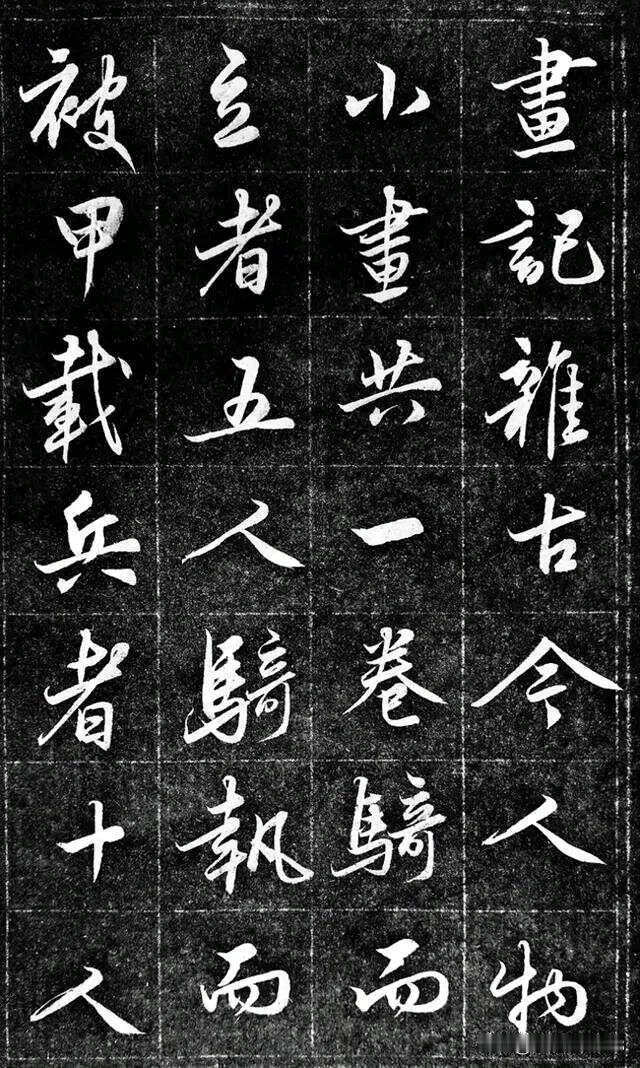 畫記雜古今人物
小畫共一卷騎而
立者五人騎執而
被甲載兵者十人